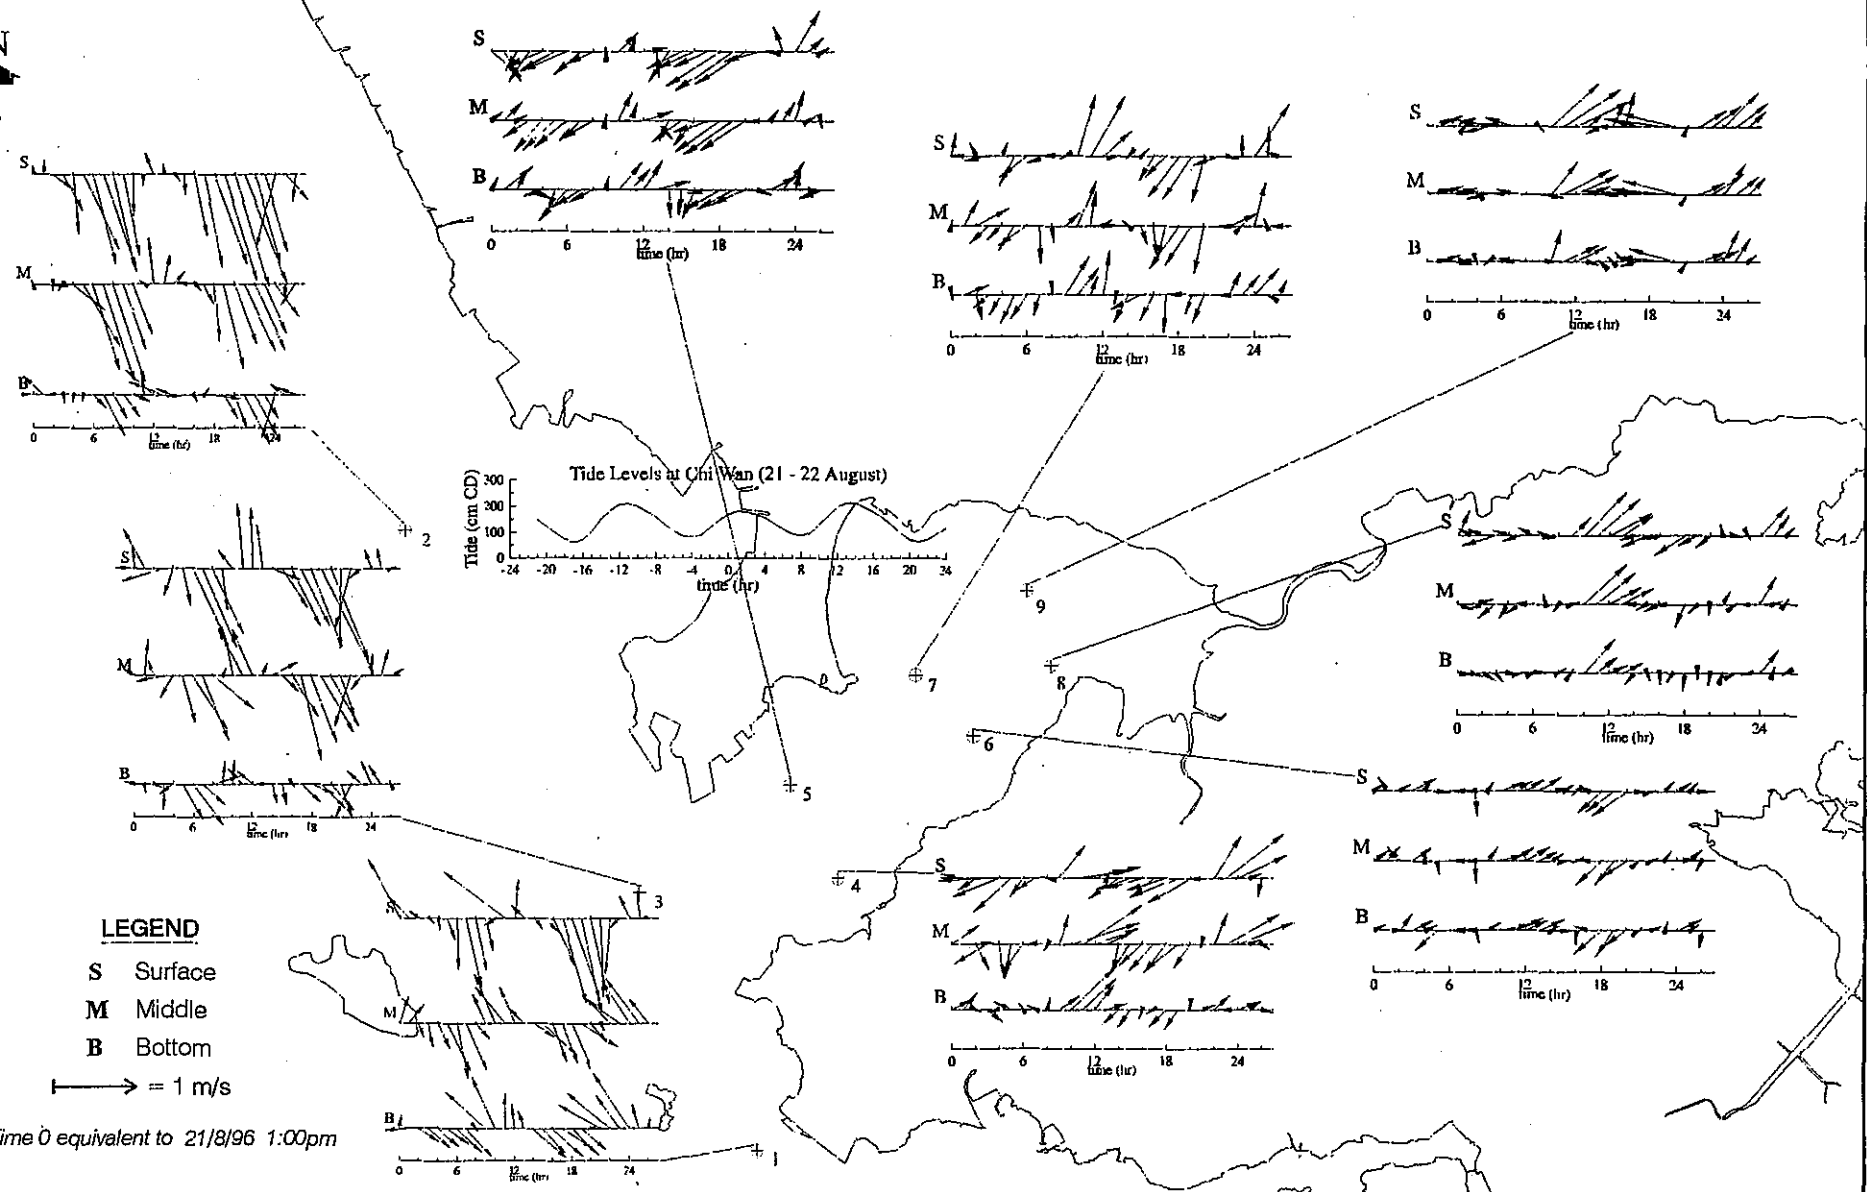 N
S
M
B
0 6 12 18 24
time (hr)
S
M
B
0 6 12 18 24
time (hr)
S
M
B
0 6 12 18 24
time (hr)
S
M
B
0 6 12 18 24
time (hr)
Tide Levels at Chi Wan (21 - 22 August)
Tide (cm CD)
300
200
100
0
-24 -20 -16 -12 -8 -4 0 4 8 12 16 20 24
time (hr)
2
9
7
8
6
5
4
3
1
S
M
B
0 6 12 18 24
time (hr)
S
M
B
0 6 12 18 24
time (hr)
S
M
B
0 6 12 18 24
time (hr)
S
M
B
0 6 12 18 24
time (hr)
S
M
B
0 6 12 18 24
time (hr)
LEGEND
S Surface
M Middle
B Bottom
= 1 m/s
ime 0 equivalent to 21/8/96 1:00pm